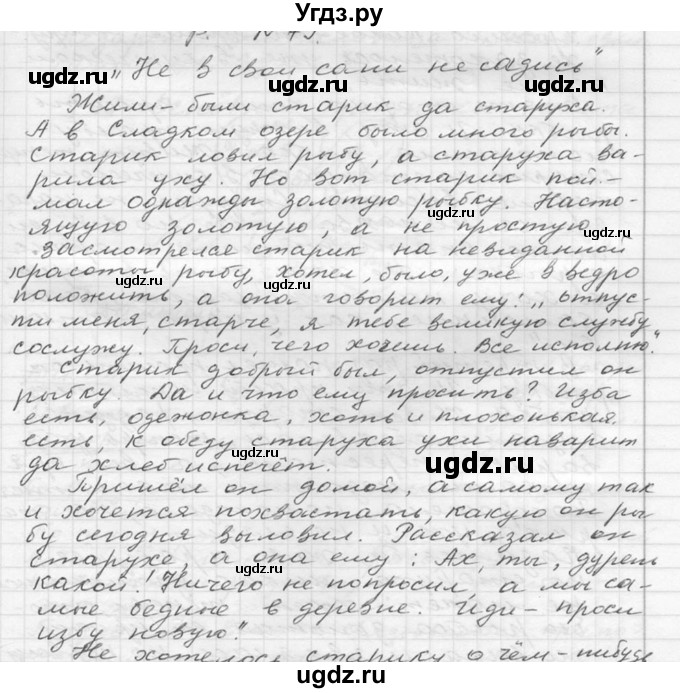 Угдз.ру
р. N 75.
„Не в свои сани не садись"
Жили-были старик да старуха.
А в Сладком озере было много рыбы.
Старик ловил рыбу, а старуха ва-
рила уху. Но вот старик пой-
мал однажды золотую рыбку. Насто-
ящую золотую, а не простую.
Засмотрелся старик на невиданной
красоты рыбу, хотел, было, уже в ведро
положить, а она говорит ему: „Отпус-
ти меня, старче, я тебе великую службу
сослужу. Проси, чего хочешь. Все исполню".
Старик добрый был, отпустил он
рыбку. Да и что ему просить? Изба
есть, одежонка, хоть и плохонькая,
есть, к обеду старуха ухи наварит
да хлеб испечёт.
Пришёл он домой, а самому так
и хочется похвастать, какую он ры-
бу сегодня выловил. Рассказал он
старухе, а она ему: Ах, ты, дурень
какой! Ничего не попросил, а мы са-
мые бедные в деревне. Иди - проси
избу новую."
Не хотелось старику о чём-нибудь
ugdz.ru
ugdz.ru
ugdz.ru
ugdz.ru
ugdz.ru
ugdz.ru
ugdz.ru
ugdz.ru
ugdz.ru
ugdz.ru
ugdz.ru